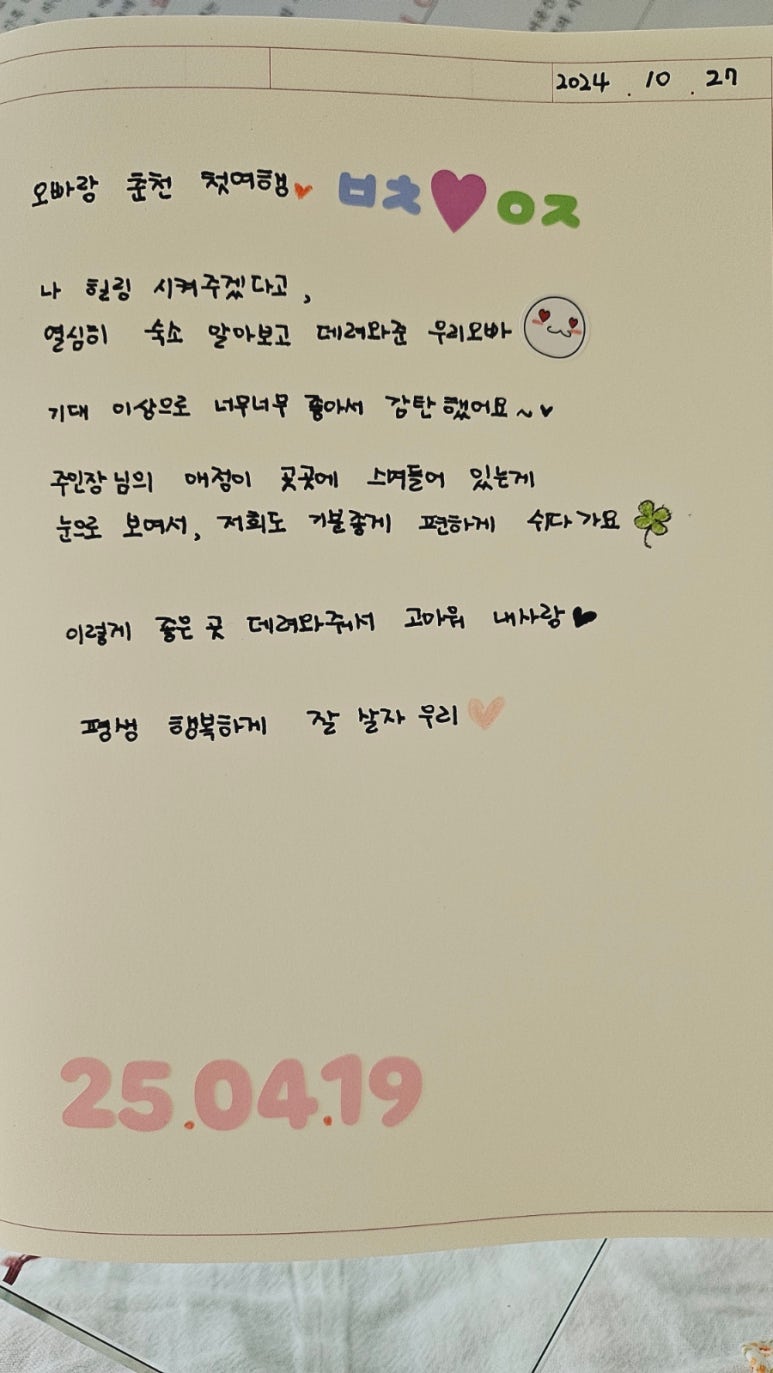 2024 . 10 . 27
오빠랑 춘천 첫여행 ㅂㅊ♥ㅇㅈ
나 힐링 시켜주겠다고,
열심히 숙소 알아보고 데려와준 우리오빠
기대 이상으로 너무너무 좋아서 감탄했어요~♥
주인장님의 애정이 곳곳에 스며들어 있는게
눈으로 보여서, 저희도 기분좋게 편하게 쉬다가요
이렇게 좋은 곳 데려와줘서 고마워 내사랑♥
평생 행복하게 잘 살자 우리
25.04.19